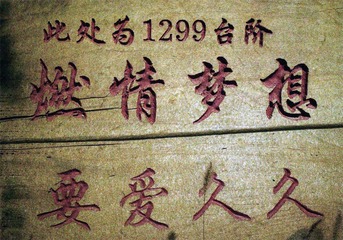 此处为1299台阶
燃情梦想
要爱人久